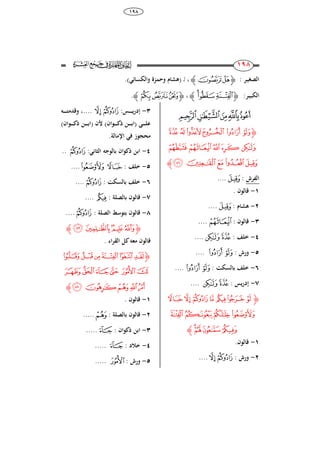 ١٩٨
١٩٨
الصغير : ﴿ هَلْ تَرَبَّصُونَ ﴾ ، لـ (هشام وحمزة والكسائي).
الكبير: ﴿ الْفِتْنَةِ سَقَطُوا ﴾ ، ﴿ وَنَحْنُ نَتَرَبَّصُ بِكُمْ ﴾.
أَعُوذُ بِاللَّهِ مِنَ الشَّيْطَانِ الرَّجِيمِ
﴿ وَلَوْ أَرَادُوا الْخُرُوجَ لَأَعَدُّوا لَهُ عُدَّةً
وَلَكِن كَرِهَ اللَّهُ انبِعَاثَهُمْ فَثَبَّطَهُمْ
وَقِيلَ اقْعُدُوا مَعَ الْقَاعِدِينَ ﴾
الفرش : وَقِيلَ ....
١- قالون .
٢- هشام : وَقِيلَ ....
٣- قالون : انبِعَاثَهُمْ ....
٤- خلف : عُدَّةً وَلَكِن ....
٥- ورش : وَلَوْ أَرَادُوا ....
٦- خلف بالسكت : وَلَوْ أَرَادُوا ....
٧- إدريس : عُدَّةً وَلَكِن ....
﴿ لَوْ خَرَجُوا فِيكُم مَّا زَادُوكُمْ إِلَّا خَبَالًا
وَلَأَوْضَعُوا خِلَالَكُمْ يَبْغُونَكُمُ الْفِتْنَةَ
وَفِيكُمْ سَمَّاعُونَ لَهُمْ ﴾
١- قالون.
٢- ورش : زَادُوكُمْ إِلَّا ....
٣- إدريس: زَادُوكُمْ إِلَّا ....، وقدمتـه
علـى (ابـن ذكـوان) لأن (ابـن ذكـوان)
محجوز في الإمالة.
٤- ابن ذكوان بالوجه الثاني: زَادُوكُمْ ..
٥- خلف : خَبَالًا وَلَأَوْضَعُوا ....
٦- خلف بالسكت : زَادُوكُمْ ....
٧- قالون بالصلة : فِيكُم ....
٨- قالون بتوسط الصلة : زَادُوكُمْ ....
﴿ وَاللَّهُ عَلِيمٌ بِالظَّالِمِينَ ﴾
قالون معه كل القراء .
﴿ لَقَدِ ابْتَغَوُا الْفِتْنَةَ مِن قَبْلُ وَقَلَّبُوا
لَكَ الْأُمُورَ حَتَّى جَاءَ الْحَقُّ وَظَهَرَ
أَمْرُ اللَّهِ وَهُمْ كَارِهُونَ ﴾
١- قالون .
٢- قالون بالصلة : وَهُمْ .....
٣- ابن ذكوان : جَاءَ .....
٤- خلاد : جَاءَ .....
٥- ورش : الْأُمُورَ .....